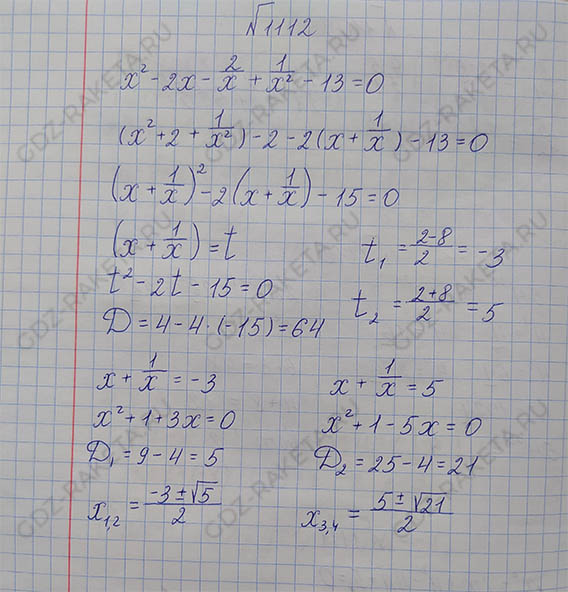 №1112
x² - 2x - 2/x + 1/x² - 13 = 0
(x² + 2 + 1/x²) - 2 - 2(x + 1/x) - 13 = 0
(x + 1/x)² - 2(x + 1/x) - 15 = 0
(x + 1/x) = t
t² - 2t - 15 = 0
D = 4 - 4·(-15) = 64
t₁ = (2-8)/2 = -3
t₂ = (2+8)/2 = 5
x + 1/x = -3
x² + 1 + 3x = 0
D₁ = 9 - 4 = 5
x₁,₂ = (-3 ± √5)/2
x + 1/x = 5
x² + 1 - 5x = 0
D₂ = 25 - 4 = 21
x₃,₄ = (5 ± √21)/2
GDZ-RAKETA.RU
GDZ-RAKETA.RU
GDZ-RAKETA.RU
GDZ-RAKETA.RU
GDZ-RAKETA.RU
GDZ-RAKETA.RU
GDZ-RAKETA.RU
GDZ-RAKETA.RU
GDZ-RAKETA.RU